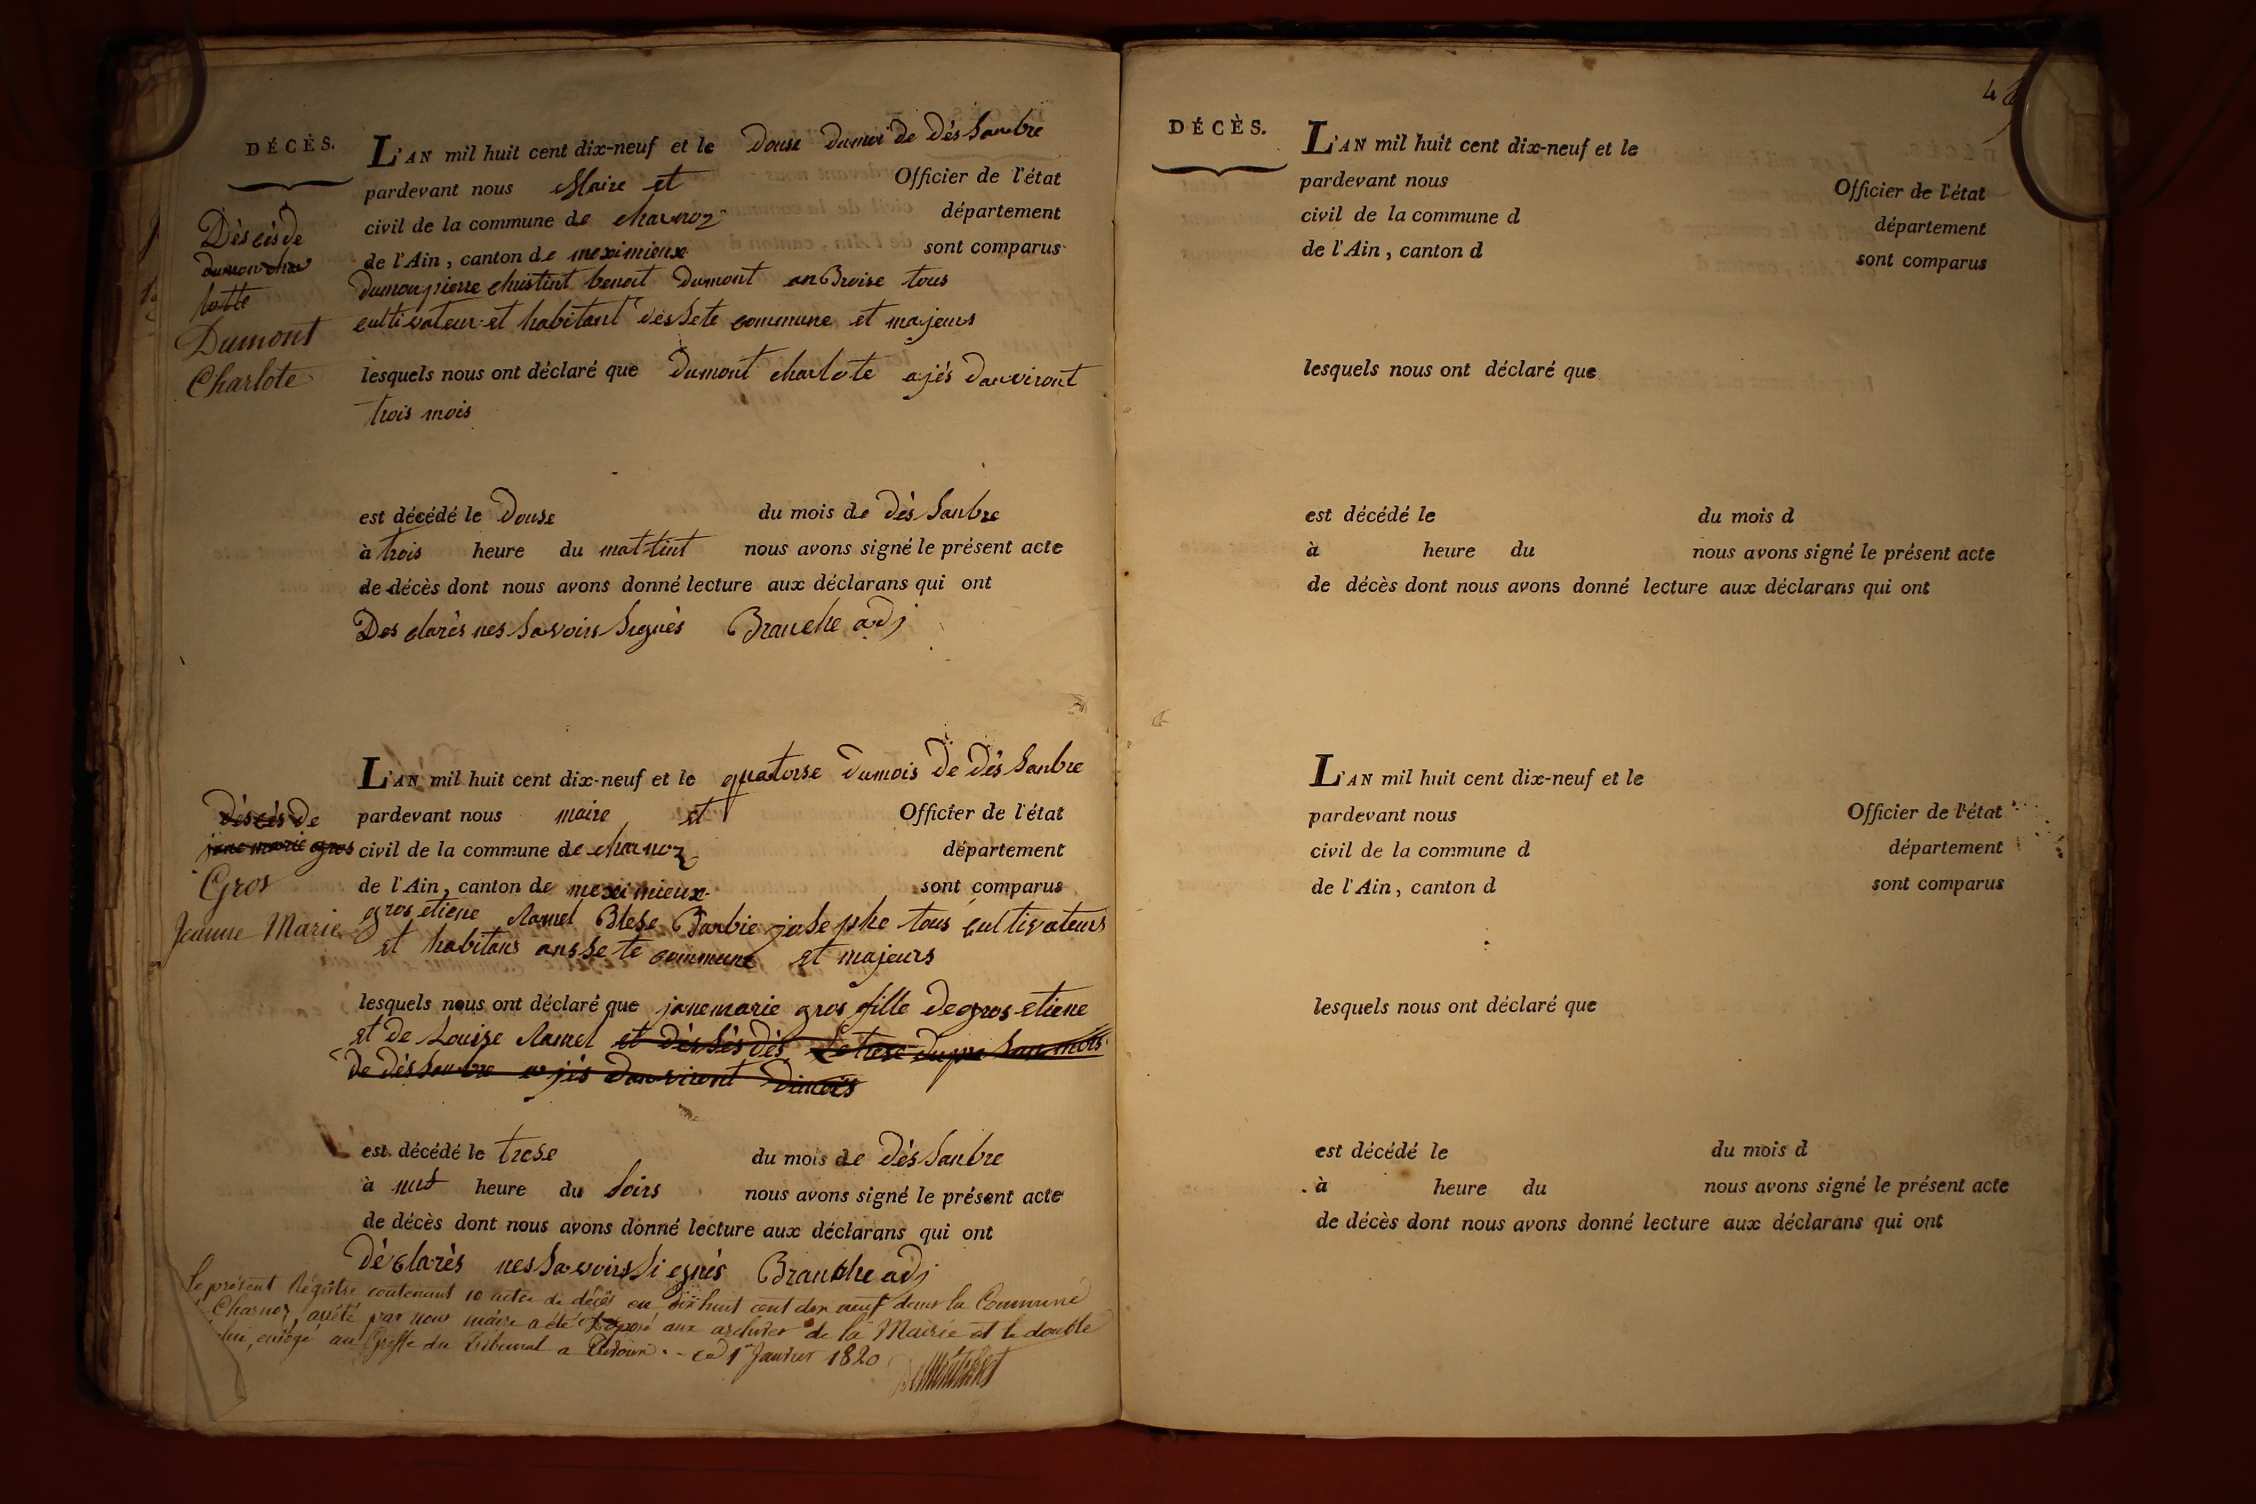 DÉCÈS.
L'AN mil huit cent dix-neuf et le Douse dumoi de Dés Sanbre
pardevant nous Maire et Officier de l'état
civil de la commune de charnoz département
de l'Ain, canton de meximieux sont comparus
Déscés de
dumon char
lotte
Dumont
Charlote
dumon pierre christint benoit Dumont anBroise tous
cultivateur et habitant des Sete commune et majeurs
lesquels nous ont déclaré que Dumont charlote ajés Danviront
trois mois
est décédé le Douse du mois de Dés Sanbre
à trois heure du mattint nous avons signé le présent acte
de décès dont nous avons donné lecture aux déclarans qui ont
Des clarés nes Savoirs Signés Branche adj
L'AN mil huit cent dix-neuf et le quatorse Dumois De Dés Sanbre
pardevant nous maire et Officier de l'état
civil de la commune de charnoz département
de l'Ain, canton de meximieux sont comparus
Déscés De
jane marie gros
Gros
Jeanne Marie
gros etiene Ramel Blese Barbie josephe tous cultivateurs
et habitans ansSe te commune et majeurs
lesquels nous ont déclaré que janemarie gros fille De gros etiene
et De Louise Ramel et Dés Sés Dés Le trese du
De Dés Sanbre ajés Danviront
est décédé le trese du mois de Dés Sanbre
à heure du Soirs nous avons signé le présent acte
de décès dont nous avons donné lecture aux déclarans qui ont
Déclarés nes Savoirs Si egnés Branche adj
Le présent Régistre contenant 10 actes de décés en dix huit cent dix neuf dans la Commune
Charnoz, arrêté par nous maire a été déposé aux archives de la Mairie et le double
au Greffe du Tribunal a - ce 1er Janvier 1820
4
DÉCÈS.
L'AN mil huit cent dix-neuf et le
pardevant nous Officier de l'état
civil de la commune d département
de l'Ain, canton d sont comparus
lesquels nous ont déclaré que
est décédé le du mois d
à heure du nous avons signé le présent acte
de décès dont nous avons donné lecture aux déclarans qui ont
L'AN mil huit cent dix-neuf et le
pardevant nous Officier de l'état
civil de la commune d département
de l'Ain, canton d sont comparus
lesquels nous ont déclaré que
est décédé le du mois d
à heure du nous avons signé le présent acte
de décès dont nous avons donné lecture aux déclarans qui ont